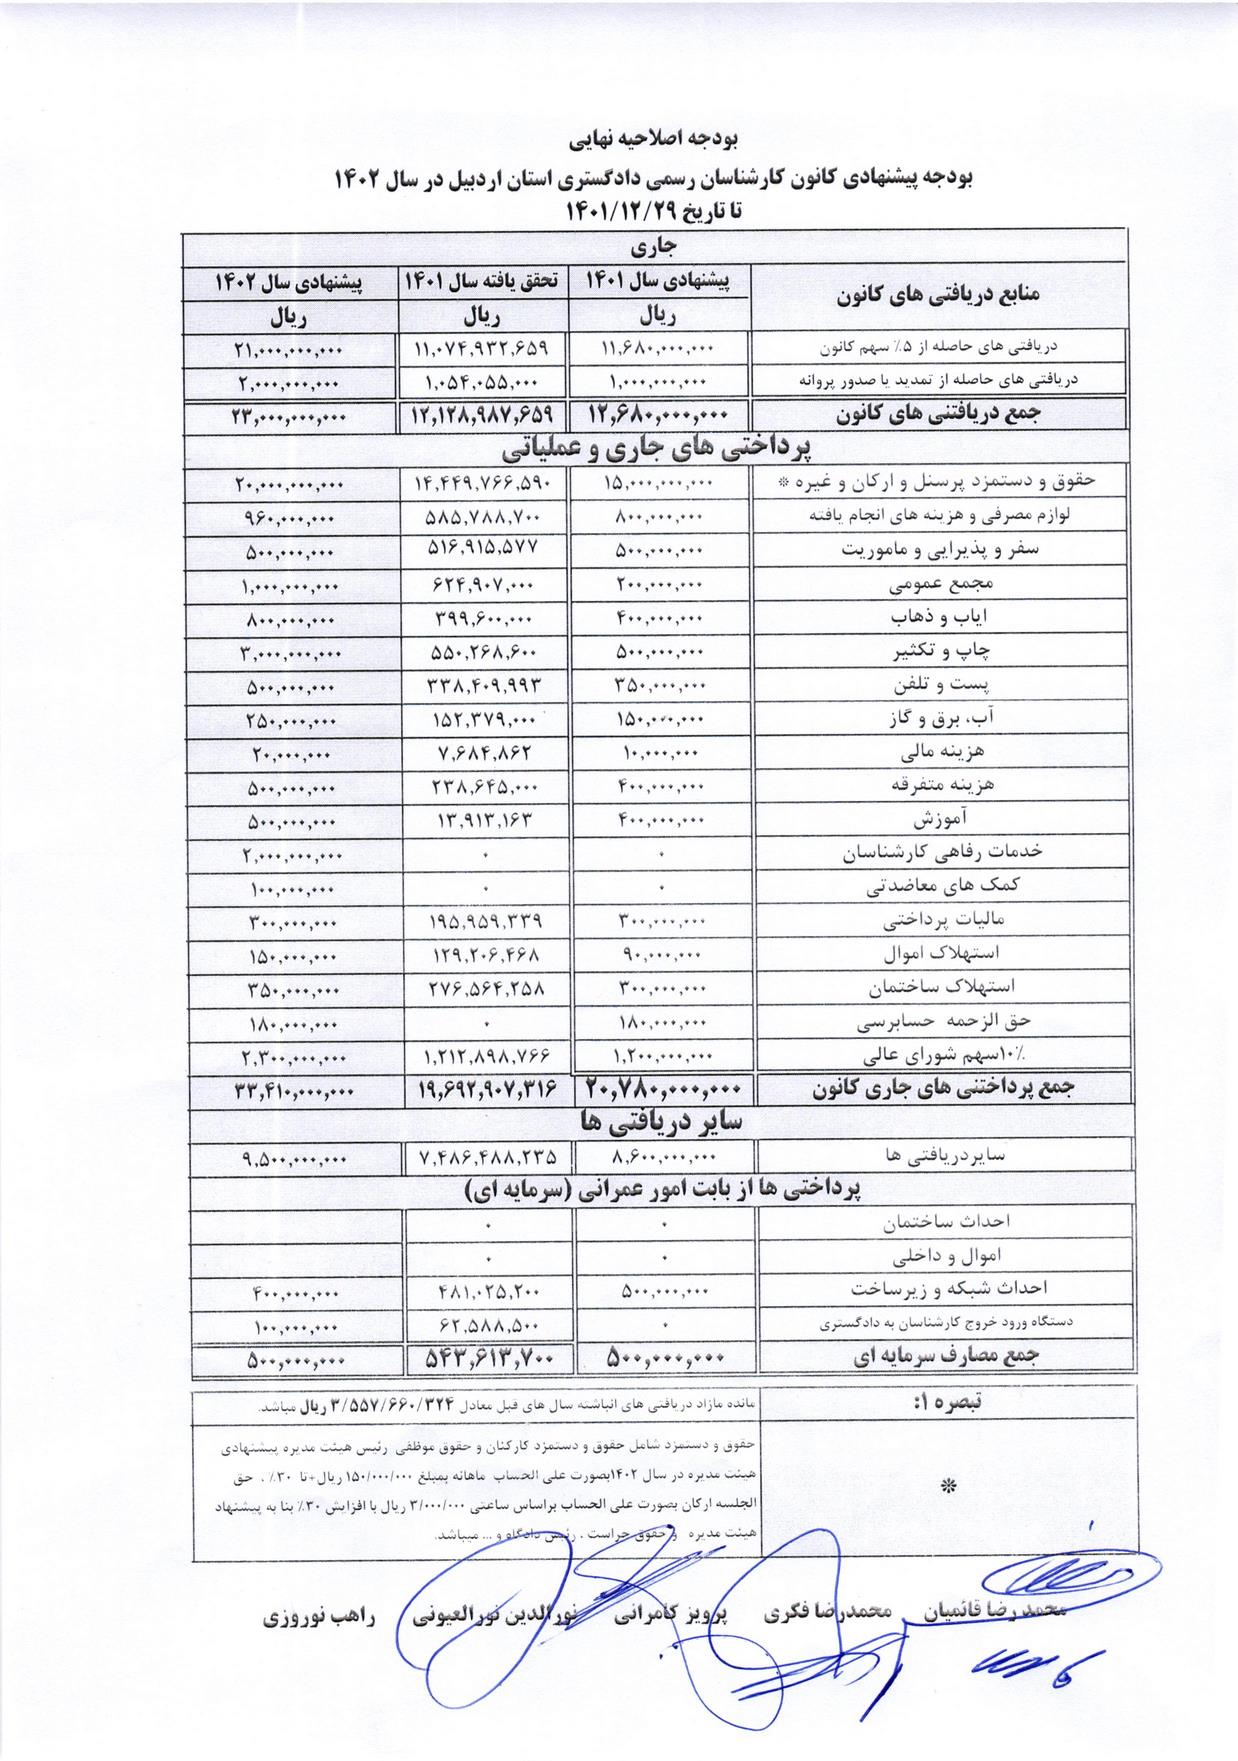 بودجه اصلاحیه نهایی
بودجه پیشنهادی کانون کارشناسان رسمی دادگستری استان اردبیل در سال ۱۴۰۲
تا تاریخ ۱۴۰۱/۱۲/۲۹
جاری
منابع دریافتی های کانون پیشنهادی سال ۱۴۰۱ تحقق یافته سال ۱۴۰۱ پیشنهادی سال ۱۴۰۲
ریال ریال ریال
دریافتی های حاصله از ۵٪ سهم کانون ۱۱,۶۸۰,۰۰۰,۰۰۰ ۱۱,۰۷۴,۹۳۲,۶۵۹ ۲۱,۰۰۰,۰۰۰,۰۰۰
دریافتی های حاصله از تمدید یا صدور پروانه ۱,۰۰۰,۰۰۰,۰۰۰ ۱,۰۵۴,۰۵۵,۰۰۰ ۲,۰۰۰,۰۰۰,۰۰۰
جمع دریافتنی های کانون ۱۲,۶۸۰,۰۰۰,۰۰۰ ۱۲,۱۲۸,۹۸۷,۶۵۹ ۲۳,۰۰۰,۰۰۰,۰۰۰
پرداختی های جاری و عملیاتی
حقوق و دستمزد پرسنل و ارکان و غیره * ۱۵,۰۰۰,۰۰۰,۰۰۰ ۱۴,۴۴۹,۷۶۶,۵۹۰ ۲۰,۰۰۰,۰۰۰,۰۰۰
لوازم مصرفی و هزینه های انجام یافته ۸۰۰,۰۰۰,۰۰۰ ۵۸۵,۷۸۸,۷۰۰ ۹۶۰,۰۰۰,۰۰۰
سفر و پذیرایی و ماموریت ۵۰۰,۰۰۰,۰۰۰ ۵۱۶,۹۱۵,۵۷۷ ۵۰۰,۰۰۰,۰۰۰
مجمع عمومی ۲۰۰,۰۰۰,۰۰۰ ۶۲۴,۹۰۷,۰۰۰ ۱,۰۰۰,۰۰۰,۰۰۰
ایاب و ذهاب ۴۰۰,۰۰۰,۰۰۰ ۳۹۹,۶۰۰,۰۰۰ ۸۰۰,۰۰۰,۰۰۰
چاپ و تکثیر ۵۰۰,۰۰۰,۰۰۰ ۵۵۰,۲۶۸,۶۰۰ ۳,۰۰۰,۰۰۰,۰۰۰
پست و تلفن ۳۵۰,۰۰۰,۰۰۰ ۳۳۸,۴۰۹,۹۹۳ ۵۰۰,۰۰۰,۰۰۰
آب، برق و گاز ۱۵۰,۰۰۰,۰۰۰ ۱۵۲,۳۷۹,۰۰۰ ۲۵۰,۰۰۰,۰۰۰
هزینه مالی ۱۰,۰۰۰,۰۰۰ ۷,۶۸۴,۸۶۲ ۲۰,۰۰۰,۰۰۰
هزینه متفرقه ۴۰۰,۰۰۰,۰۰۰ ۲۳۸,۶۴۵,۰۰۰ ۵۰۰,۰۰۰,۰۰۰
آموزش ۴۰۰,۰۰۰,۰۰۰ ۱۳,۹۱۳,۱۶۳ ۵۰۰,۰۰۰,۰۰۰
خدمات رفاهی کارشناسان ۰ ۰ ۲,۰۰۰,۰۰۰,۰۰۰
کمک های معاضدتی ۰ ۰ ۱۰۰,۰۰۰,۰۰۰
مالیات پرداختی ۳۰۰,۰۰۰,۰۰۰ ۱۹۵,۹۵۹,۳۳۹ ۳۰۰,۰۰۰,۰۰۰
استهلاک اموال ۹۰,۰۰۰,۰۰۰ ۱۲۹,۲۰۶,۴۶۸ ۱۵۰,۰۰۰,۰۰۰
استهلاک ساختمان ۳۰۰,۰۰۰,۰۰۰ ۲۷۶,۵۶۴,۲۵۸ ۳۵۰,۰۰۰,۰۰۰
حق الزحمه حسابرسی ۱۸۰,۰۰۰,۰۰۰ ۰ ۱۸۰,۰۰۰,۰۰۰
۱۰٪سهم شورای عالی ۱,۲۰۰,۰۰۰,۰۰۰ ۱,۲۱۲,۸۹۸,۷۶۶ ۲,۳۰۰,۰۰۰,۰۰۰
جمع پرداختنی های جاری کانون ۲۰,۷۸۰,۰۰۰,۰۰۰ ۱۹,۶۹۲,۹۰۷,۳۱۶ ۳۳,۴۱۰,۰۰۰,۰۰۰
سایر دریافتی ها
سایردریافتی ها ۸,۶۰۰,۰۰۰,۰۰۰ ۷,۴۸۶,۴۸۸,۲۳۵ ۹,۵۰۰,۰۰۰,۰۰۰
پرداختی ها از بابت امور عمرانی (سرمایه ای)
احداث ساختمان ۰ ۰
اموال و داخلی ۰ ۰
احداث شبکه و زیرساخت ۵۰۰,۰۰۰,۰۰۰ ۴۸۱,۰۲۵,۲۰۰ ۴۰۰,۰۰۰,۰۰۰
دستگاه ورود خروج کارشناسان به دادگستری ۰ ۶۲,۵۸۸,۵۰۰ ۱۰۰,۰۰۰,۰۰۰
جمع مصارف سرمایه ای ۵۰۰,۰۰۰,۰۰۰ ۵۴۳,۶۱۳,۷۰۰ ۵۰۰,۰۰۰,۰۰۰
تبصره ۱: مانده مازاد دریافتی های انباشته سال های قبل معادل ۳/۵۵۷/۶۶۰/۳۲۴ ریال میاشد.
حقوق و دستمزد شامل حقوق و دستمزد کارکنان و حقوق موظفی رئیس هیئت مدیره پیشنهادی
هیئت مدیره در سال ۱۴۰۲بصورت علی الحساب ماهانه بمبلغ ۱۵۰/۰۰۰/۰۰۰ ریال+تا ۳۰٪ ، حق
* الجلسه ارکان بصورت علی الحساب براساس ساعتی ۳/۰۰۰/۰۰۰ ریال با افزایش ۳۰٪ بنا به پیشنهاد
هیئت مدیره و حقوق حراست ، رئیس دادگاه و ... میباشد.
محمد رضا قائمیان محمدرضا فکری پرویز کامرانی نورالدین نورالعیونی راهب نوروزی